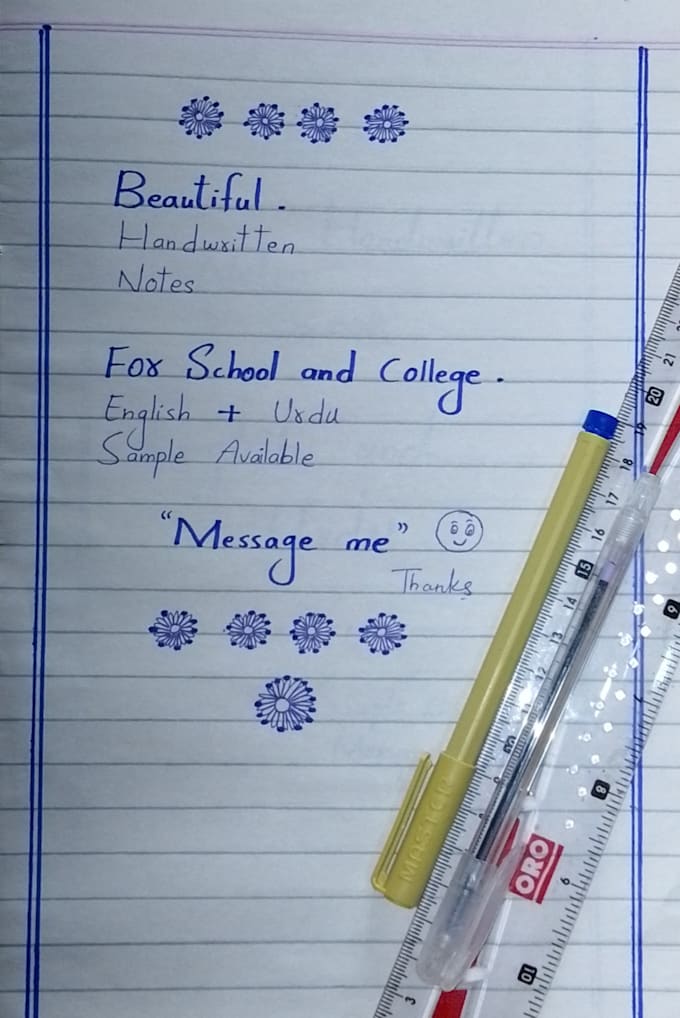 Beautiful.
Handwritten
Notes
For School and College.
English + Urdu
Sample Available
"Message me"
Thanks
MASTER
ORO
21
20
19
18
17
16
15
14
13
12
11
3
6
8
9
10